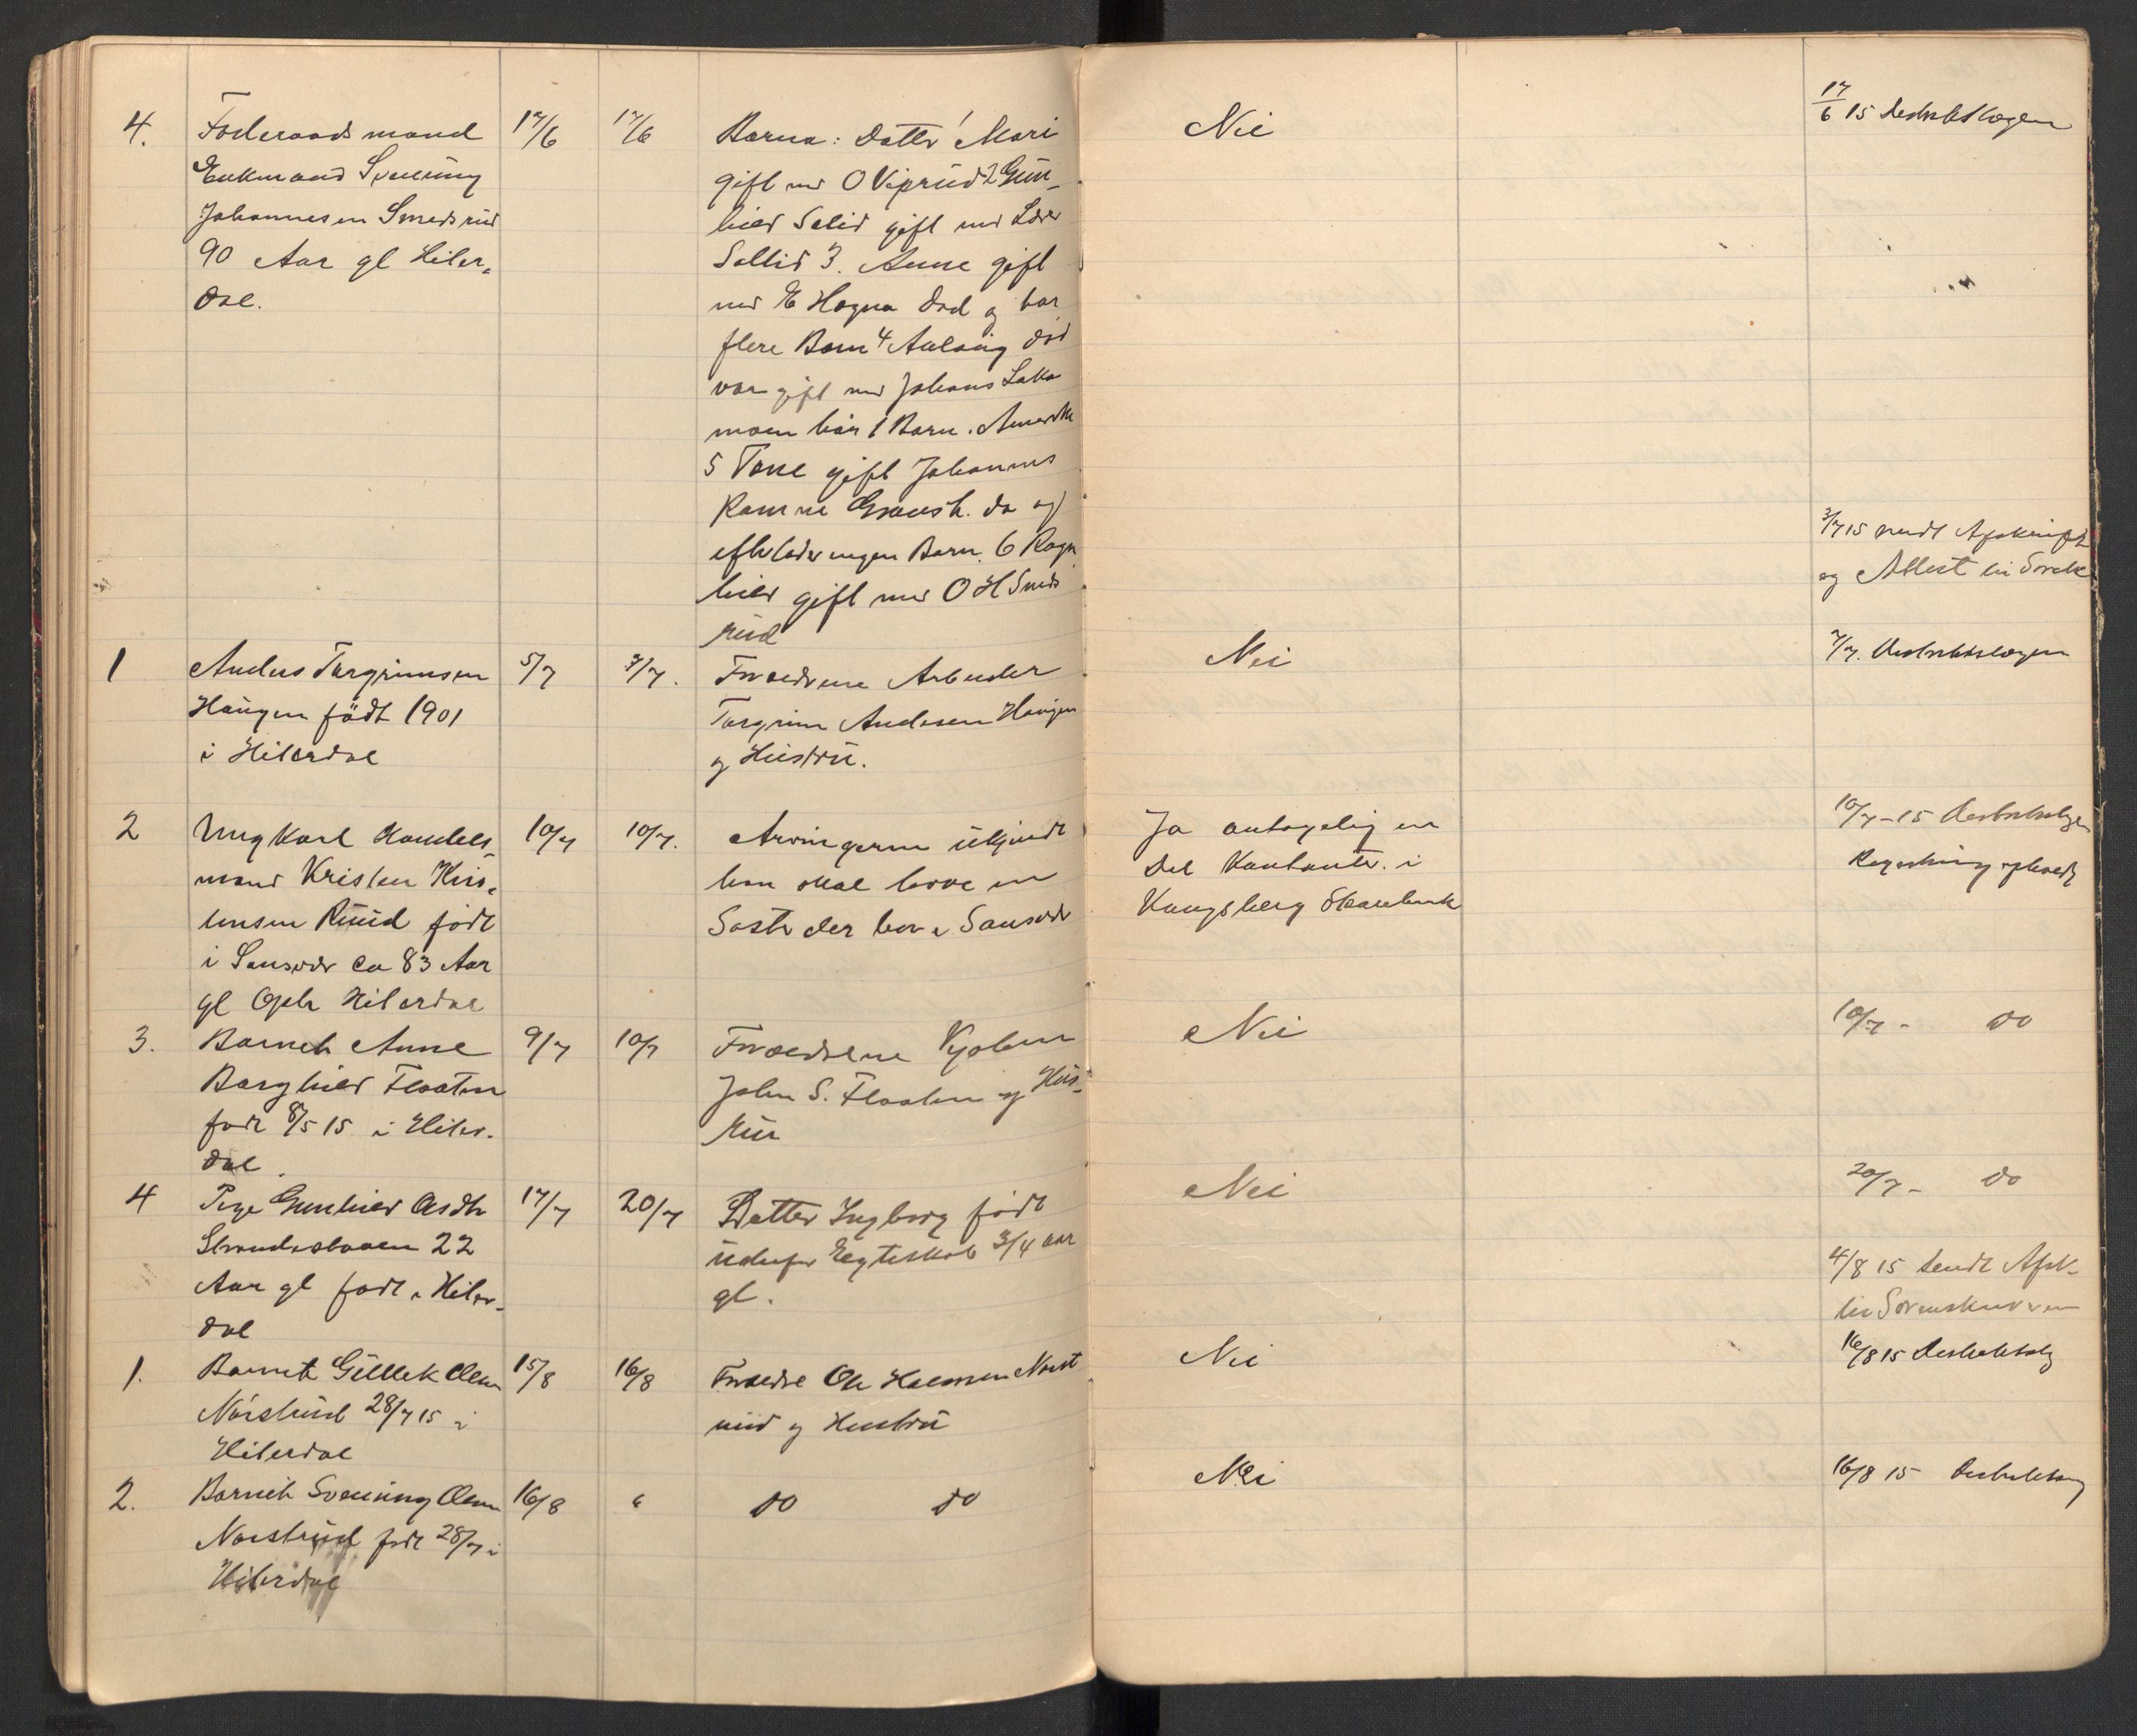 4.
Føderaadsmand
Enkmand Svenung
Johannesen Smedsrud
90 Aar gl Hiter-
dal.
17/6
17/6
Barna: Datter 1 Mari
gift med O Viprud 2 Gun-
hild Solid gift med Lærer
Sollid 3. Anne gift
med E Hogna død og har
flere Barn 4 Aalaug død
var gift med Johans Laka
moen har 1 Barn. Amerika
5 Tone gift Johannes
Ramne Gransh. do og
efterlader ingen Barn. 6 Ragn
hild gift med O H Smeds
rud
Nei
17/6 15 Destriktslægen
3/7 15 sendt Afskrift
og Attest til Sorsk
1
Anders Torgrimsen
Haugen født 1901
i Hiterdal
5/7
7/7.
Forældrene Arbeider
Torgrim Andersen Haugen
og Hustru.
Nei
7/7. Destriktslægen
2
Ungkarl Handels
mand Kristen Kris-
tensen Ruud født
i Sansvær ca 83 Aar
gl Oph Hiterdal
10/7
10/7.
Arvingerne ukjendt
han skal have en
Søster der bor i Sansvær
Ja antagelig en
Del Kontanter i
Kongsberg Sparebank
10/7-15 Destriktslægen
Registrering ophold
3.
Barnet Anne
Borghild Flaaten
født 8/5 15 i Hiter-
dal.
9/7
10/7
Forældrene
John S. Flaaten og Hus-
tru
Nei
10/7 - do
4
Pige Gunhild Asdtr
Strandestaaen 22
Aar gl født i Hiter-
dal
17/7
20/7
Datter Ingborg født
udenfor Egteskab 3/4 aar
gl.
Nei
20/7 - do
4/8 15 sendt Afsk-
til Sorenskriveren
1.
Barnet Gullek Olsen
Norstrud 28/7 15 i
Hiterdal
15/8
16/8
Forældre Ole Halvorsen Norst
rud og Hustru
Nei
16/8 15 Destriktslg
2.
Barnet Svenung Olsen
Norstrud født 28/7 i
Hiterdal
16/8
"
do do
Nei
16/8 15 Destriktslg